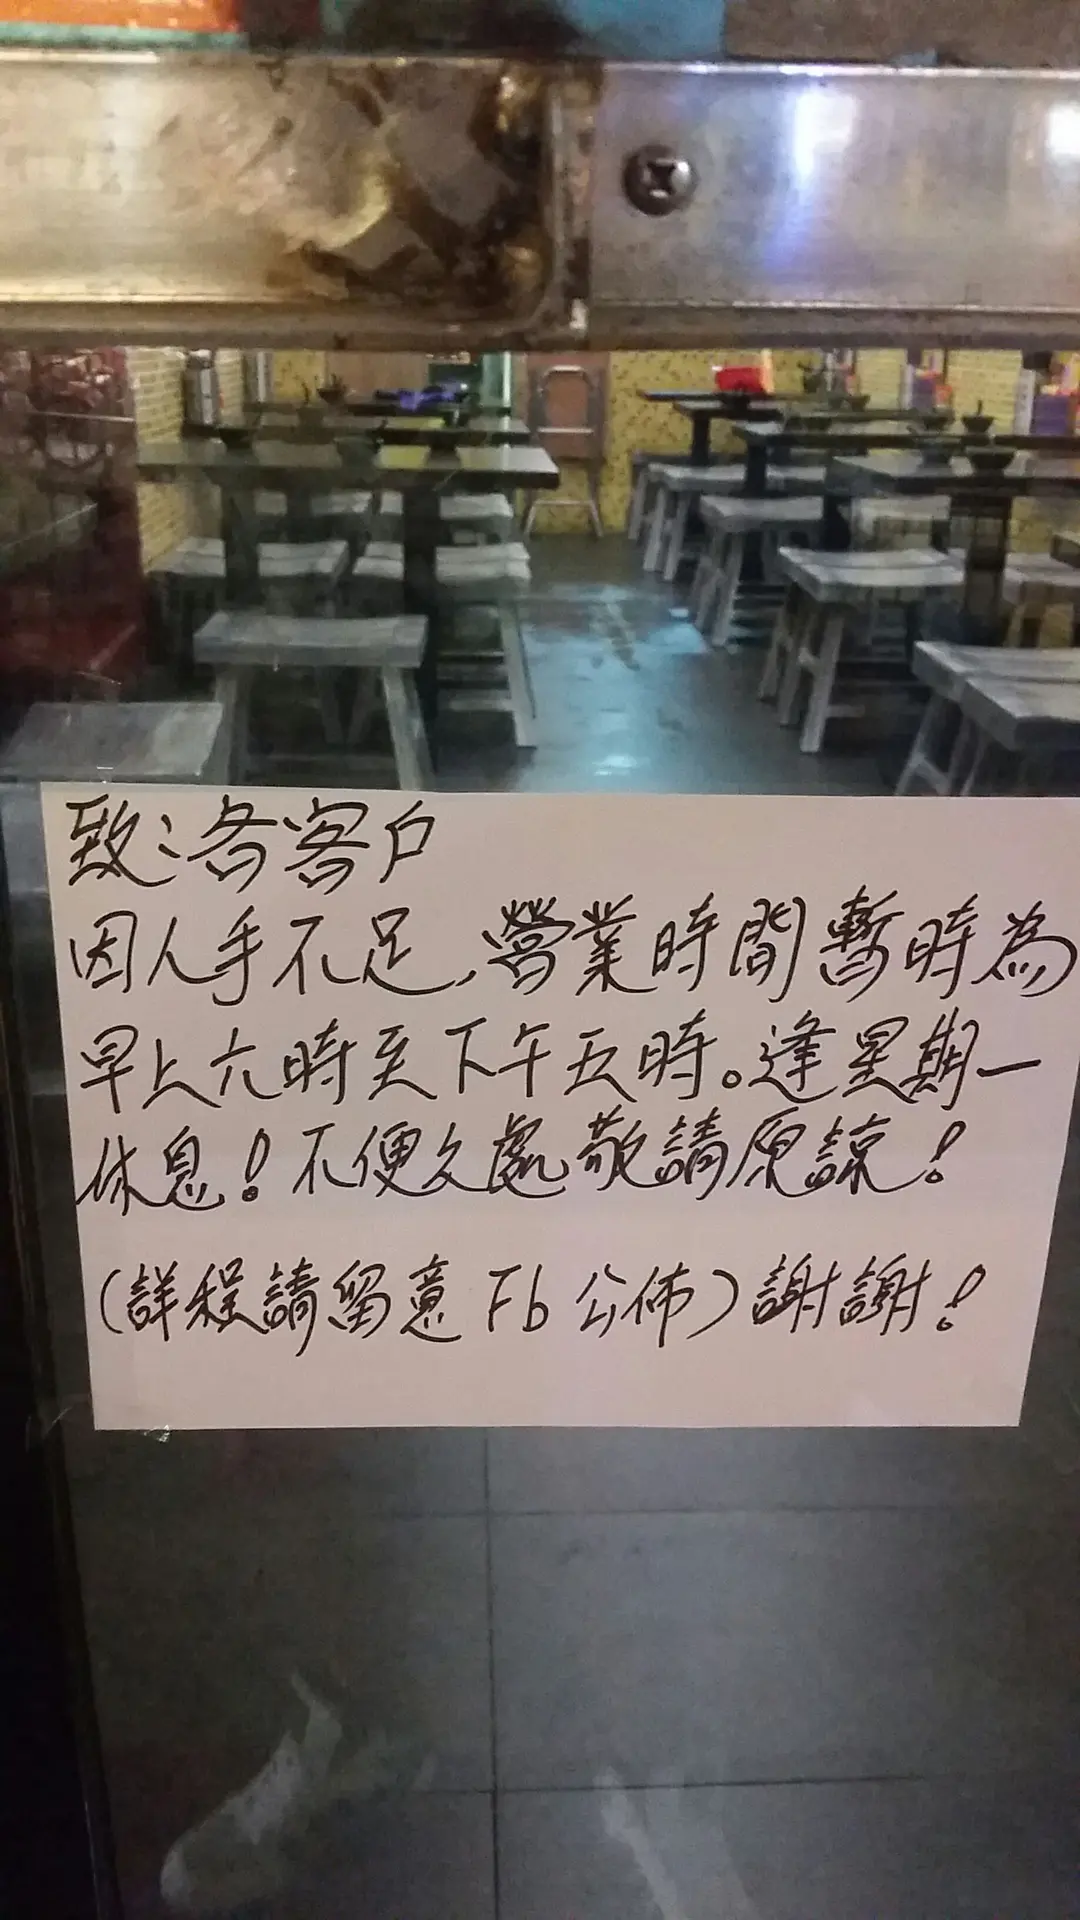 致：各客户
因人手不足,營業時間暫時為
早上六時至下午五時。逢星期一
休息！不便之處敬請原諒！
(詳程請留意 Fb 公佈)謝謝！